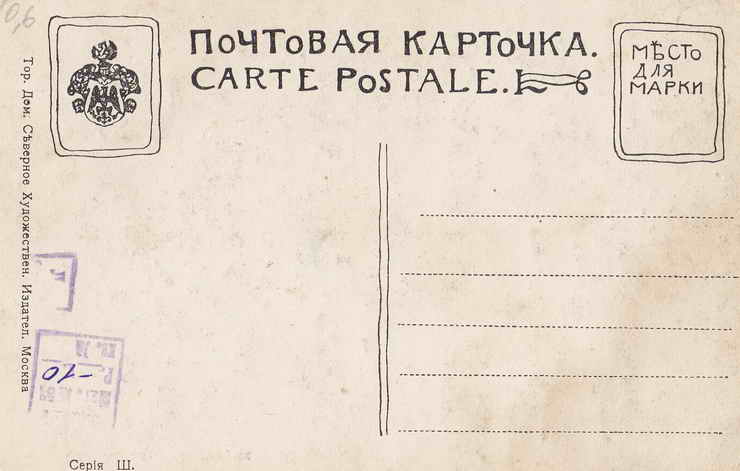 ПОЧТОВАЯ КАРТОЧКА.
CARTE POSTALE.
МѢСТО
ДЛЯ
МАРКИ
Тор. Дом. Сѣверное Художествен. Издател. Москва
0,6
-10
Серія Ш.